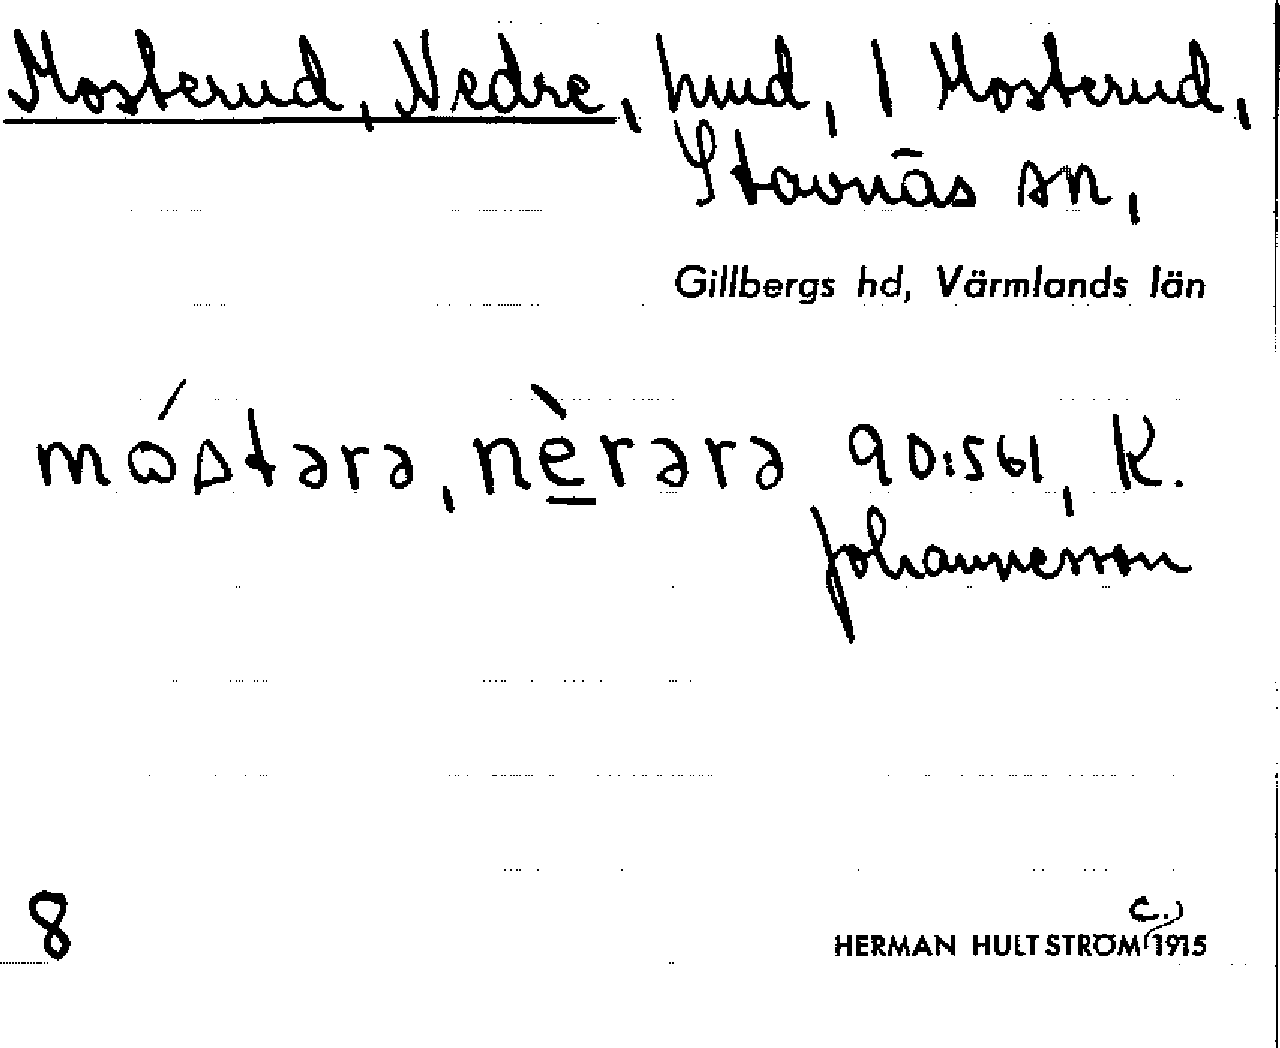 Mosterud, Nedre, hmd, 1 Mosterud,
Stavnäs sn,
Gillbergs hd, Värmlands län
mɷ́stərə, nèrərə 90:561, K.
Johannesson
8
c.)
HERMAN HULTSTRÖM 1915